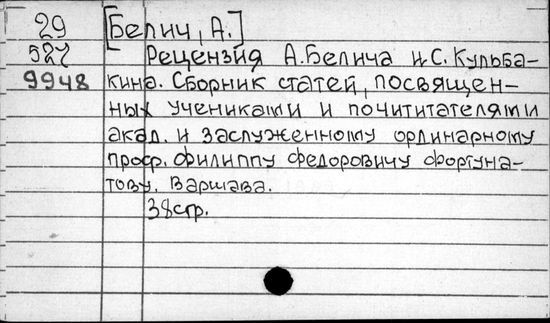 29 [Белич, А.]
527 Рецензия А.Белича и С. Кульба-
9948 кина. Сборник статей, посвящен-
ных учениками и почитителями
акад. и заслуженному ординарному
проф. Филиппу Федоровичу Фортуна-
тову. Варшава.
38стр.